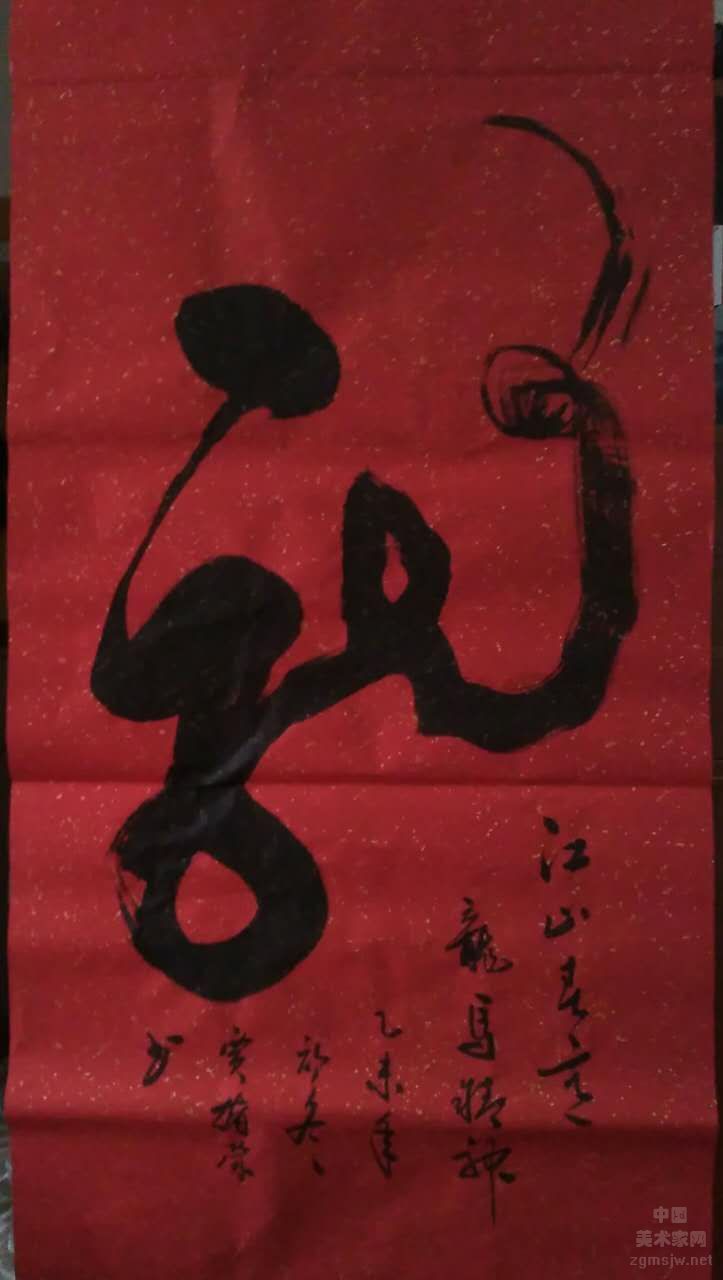 龍
江山春意
龍馬精神
乙未年
初冬
书
中国
美术家网
zgmsjw.net